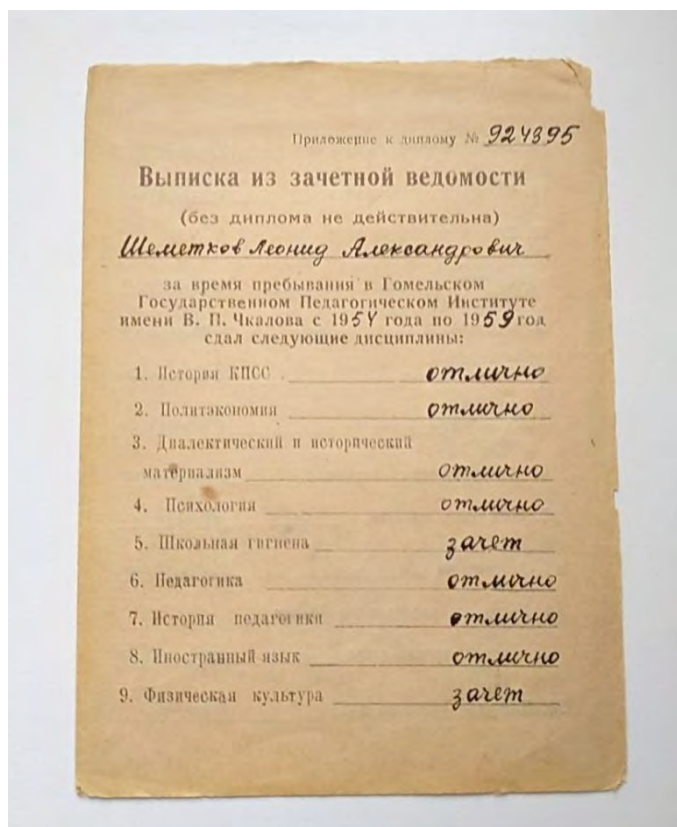 Приложение к диплому № 924395
Выписка из зачетной ведомости
(без диплома не действительна)
Шеметков Леонид Александрович
за время пребывания в Гомельском
Государственном Педагогическом Институте
имени В. П. Чкалова с 1954 года по 1959 год
сдал следующие дисциплины:
1. История КПСС отлично
2. Политэкономия отлично
3. Диалектический и исторический
материализм отлично
4. Психология отлично
5. Школьная гигиена зачет
6. Педагогика отлично
7. История педагогики отлично
8. Иностранный язык отлично
9. Физическая культура зачет